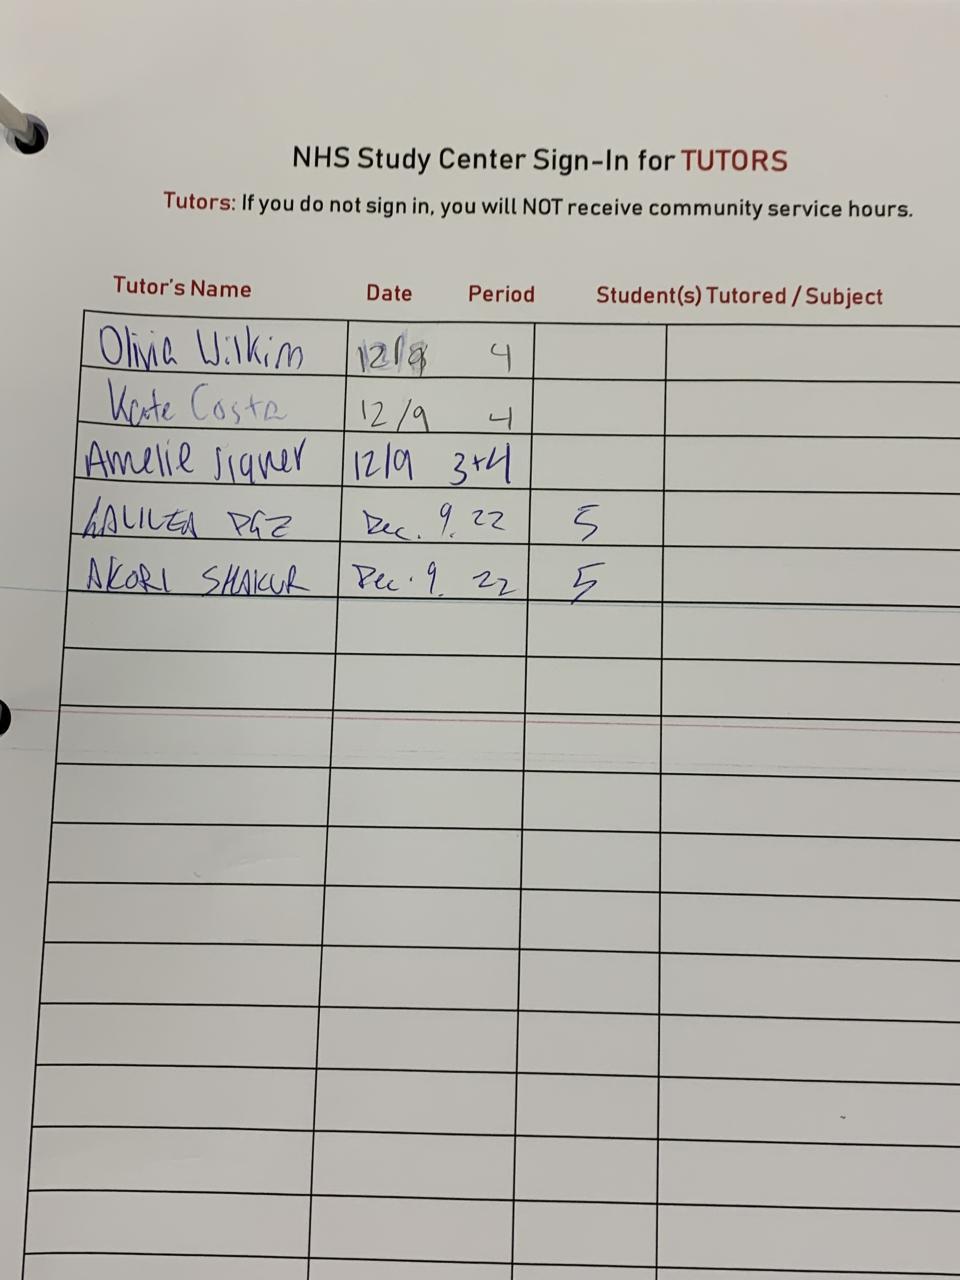 NHS Study Center Sign-In for TUTORS
Tutors: If you do not sign in, you will NOT receive community service hours.
Tutor's Name Date Period Student(s) Tutored / Subject
Olivia Wilkim 12/9 4
Kate Costa 12/9 4
Amelie Signer 12/9 3+4
GALILEA Dec. 9. 22 5
AKORI SHAKUR Dec. 9. 22 5